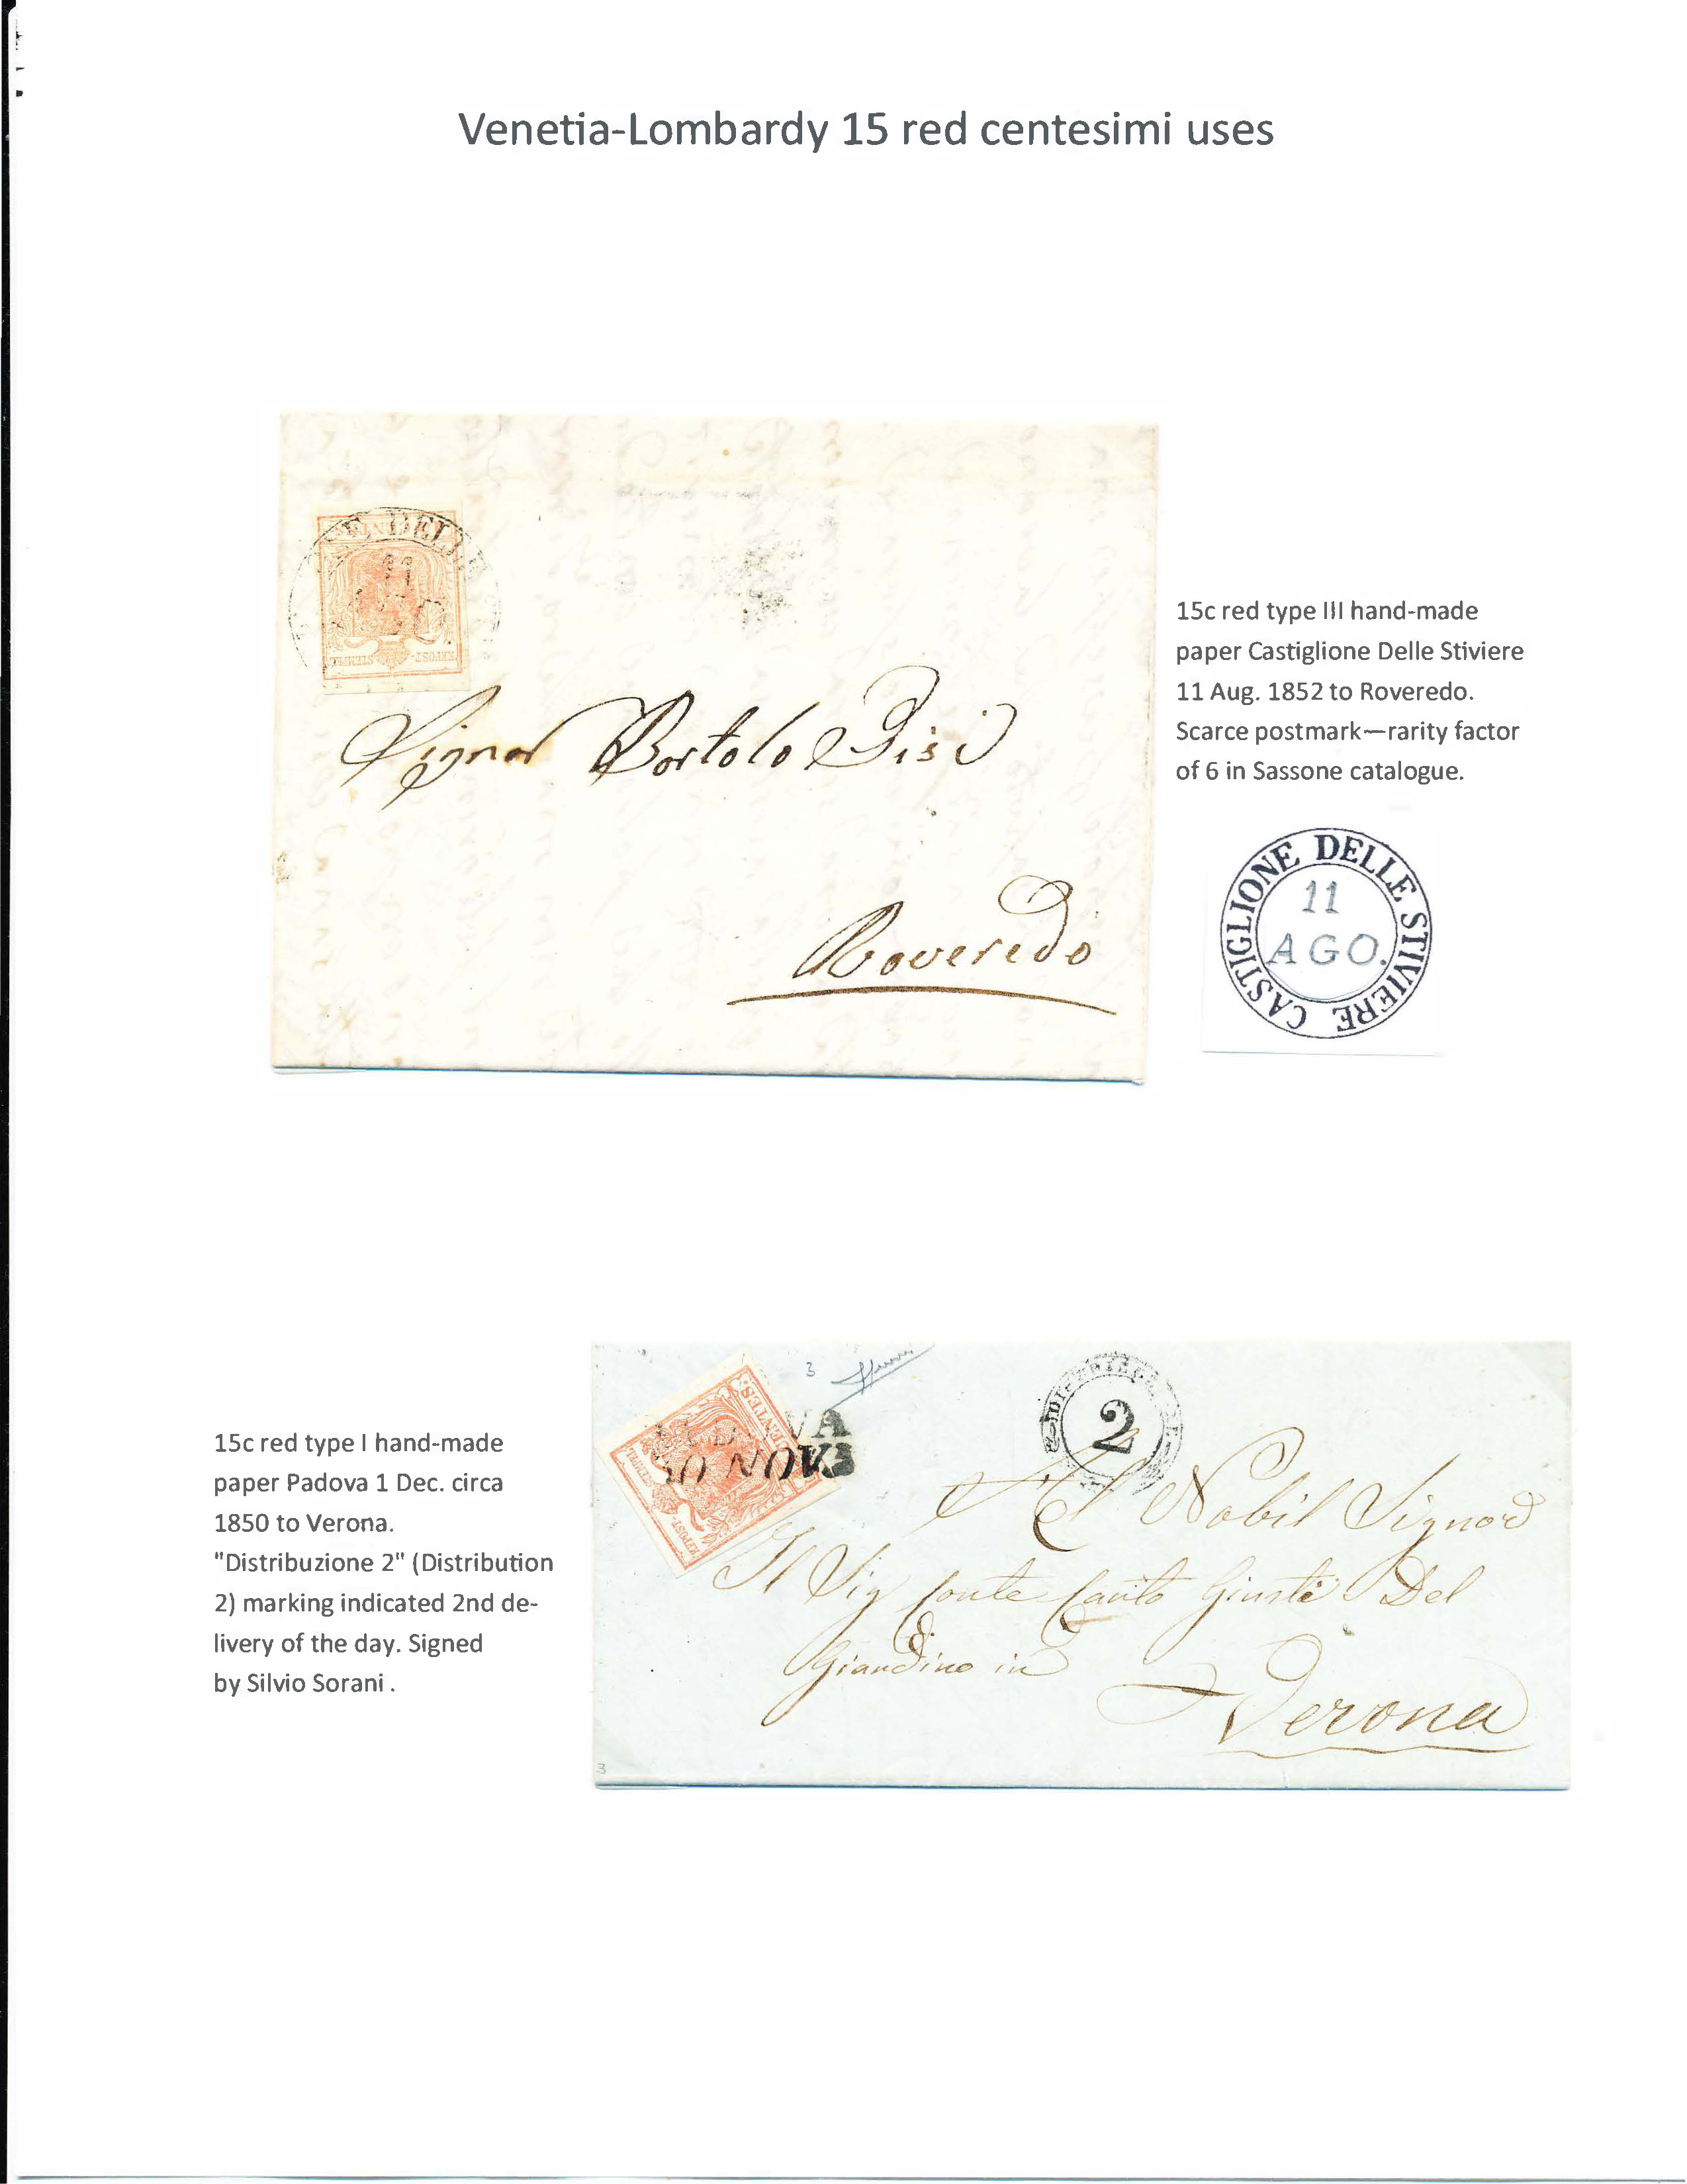 Venetia-Lombardy 15 red centesimi uses
E. DELLE
11
Signor Bortolo Bisi
Roveredo
15c red type III hand-made
paper Castiglione Delle Stiviere
11 Aug. 1852 to Roveredo.
Scarce postmark—rarity factor
of 6 in Sassone catalogue.
CASTIGLIONE DELLE STIVIERE
11
AGO.
15c red type I hand-made
paper Padova 1 Dec. circa
1850 to Verona.
"Distribuzione 2" (Distribution
2) marking indicated 2nd de-
livery of the day. Signed
by Silvio Sorani .
3
KKPOST-
STEMPEL
CENTES:
30 NOV.
2
Al Nobil Signor
Il Sig Conte Giusti Del
Giardino in
Verona
3